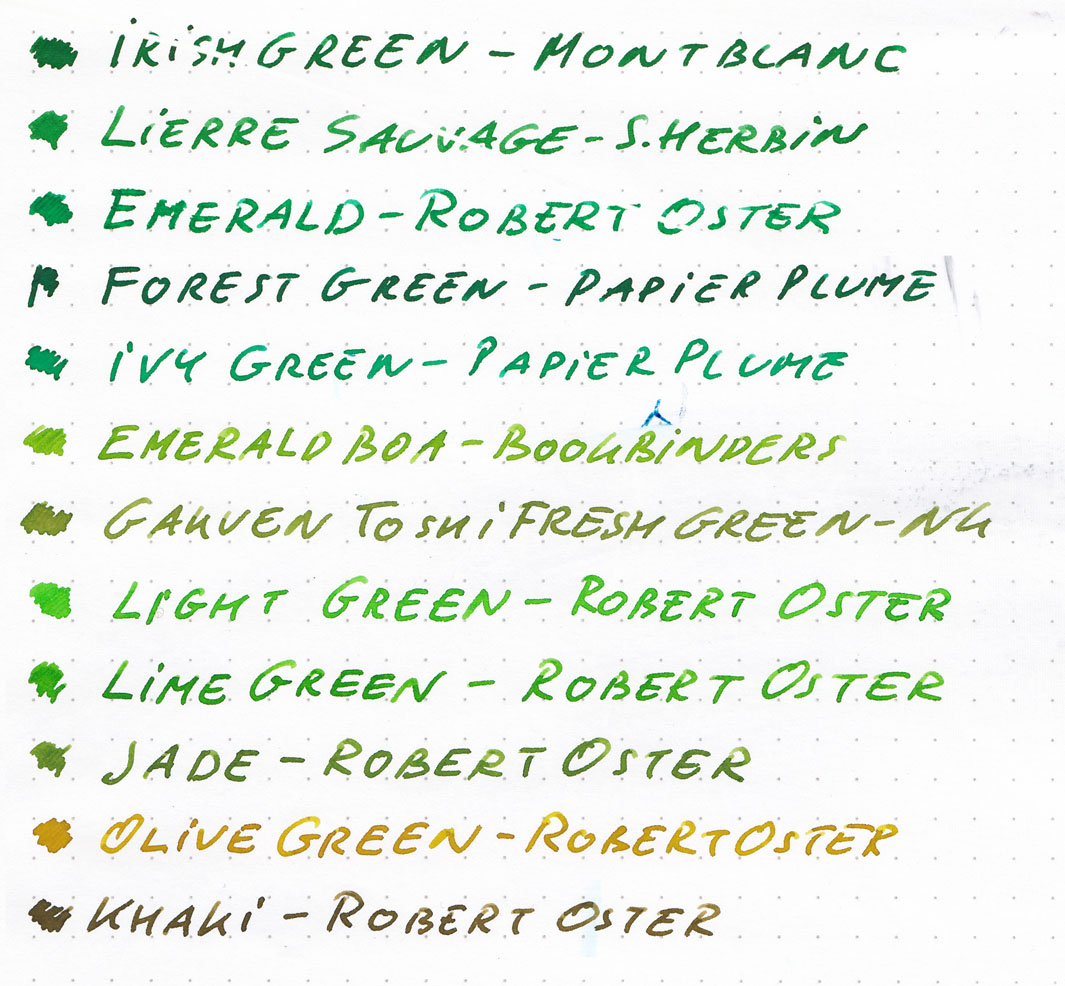 IRISH GREEN - MONTBLANC
LIERRE SAUVAGE - S. HERBIN
EMERALD - ROBERT OSTER
FOREST GREEN - PAPIER PLUME
IVY GREEN - PAPIER PLUME
EMERALD BOA - BOOKBINDERS
GAKUEN TOSHI FRESH GREEN - NK
LIGHT GREEN - ROBERT OSTER
LIME GREEN - ROBERT OSTER
JADE - ROBERT OSTER
OLIVE GREEN - ROBERT OSTER
KHAKI - ROBERT OSTER